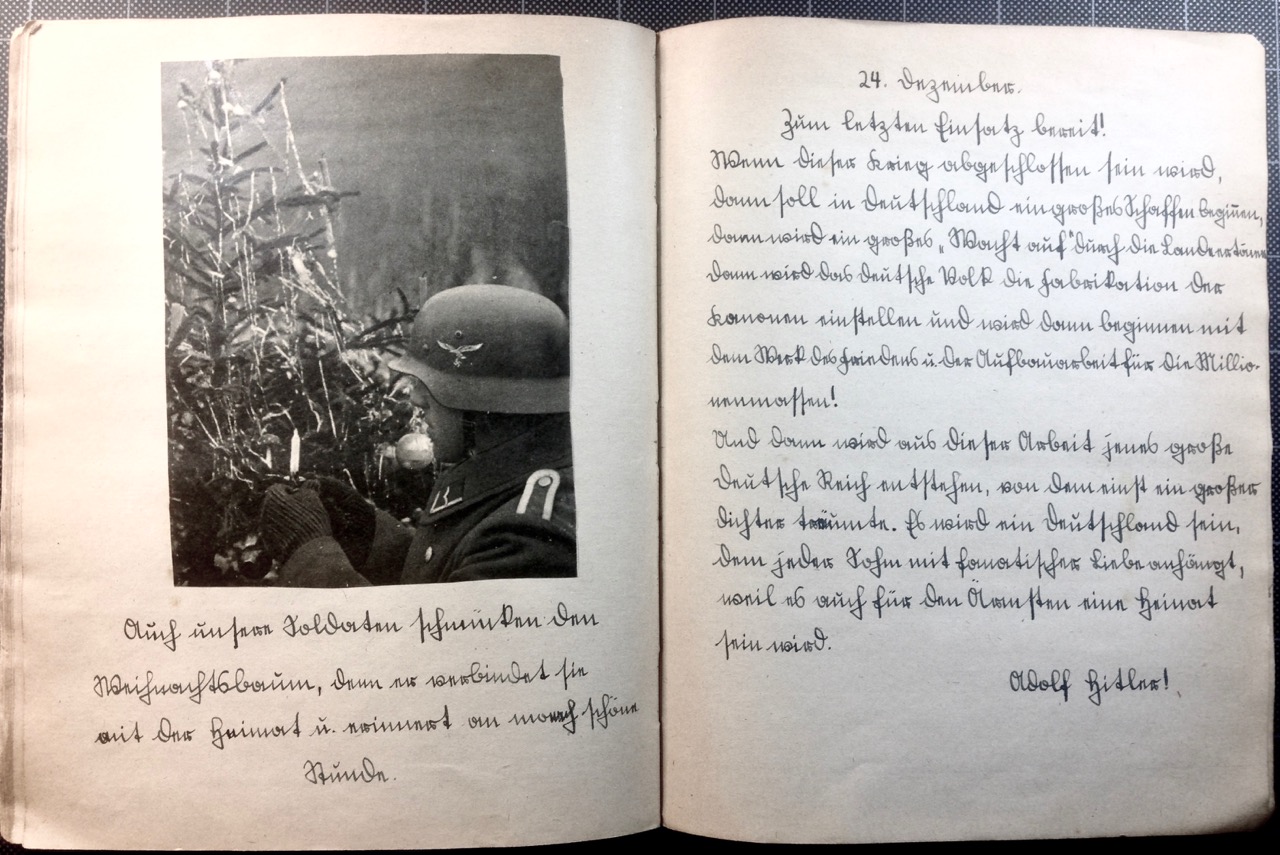 Auch unsere Soldaten schmücken den
Weihnachtsbaum, denn er verbindet sie
mit der Heimat u. erinnert an manch schöne
Stunde.
24. Dezember.
Zum letzten Einsatz bereit!
Wenn dieser Krieg abgeschlossen sein wird,
dann soll in Deutschland ein großes Schaffen beginnen,
dann wird ein großes „Wacht auf" durch die Lande ertönen
Dann wird das deutsche Volk die Fabrikation der
Kanonen einstellen und wird dann beginnen mit
dem Werk des Friedens u. der Aufbauarbeit für die Millio-
nenmassen!
Und dann wird aus dieser Arbeit jenes große
Deutsche Reich entstehen, von dem einst ein großer
Dichter träumte. Es wird ein Deutschland sein,
dem jeder Sohn mit fanatischer Liebe anhängt,
weil es auch für den Ärmsten eine Heimat
sein wird.
Adolf Hitler!